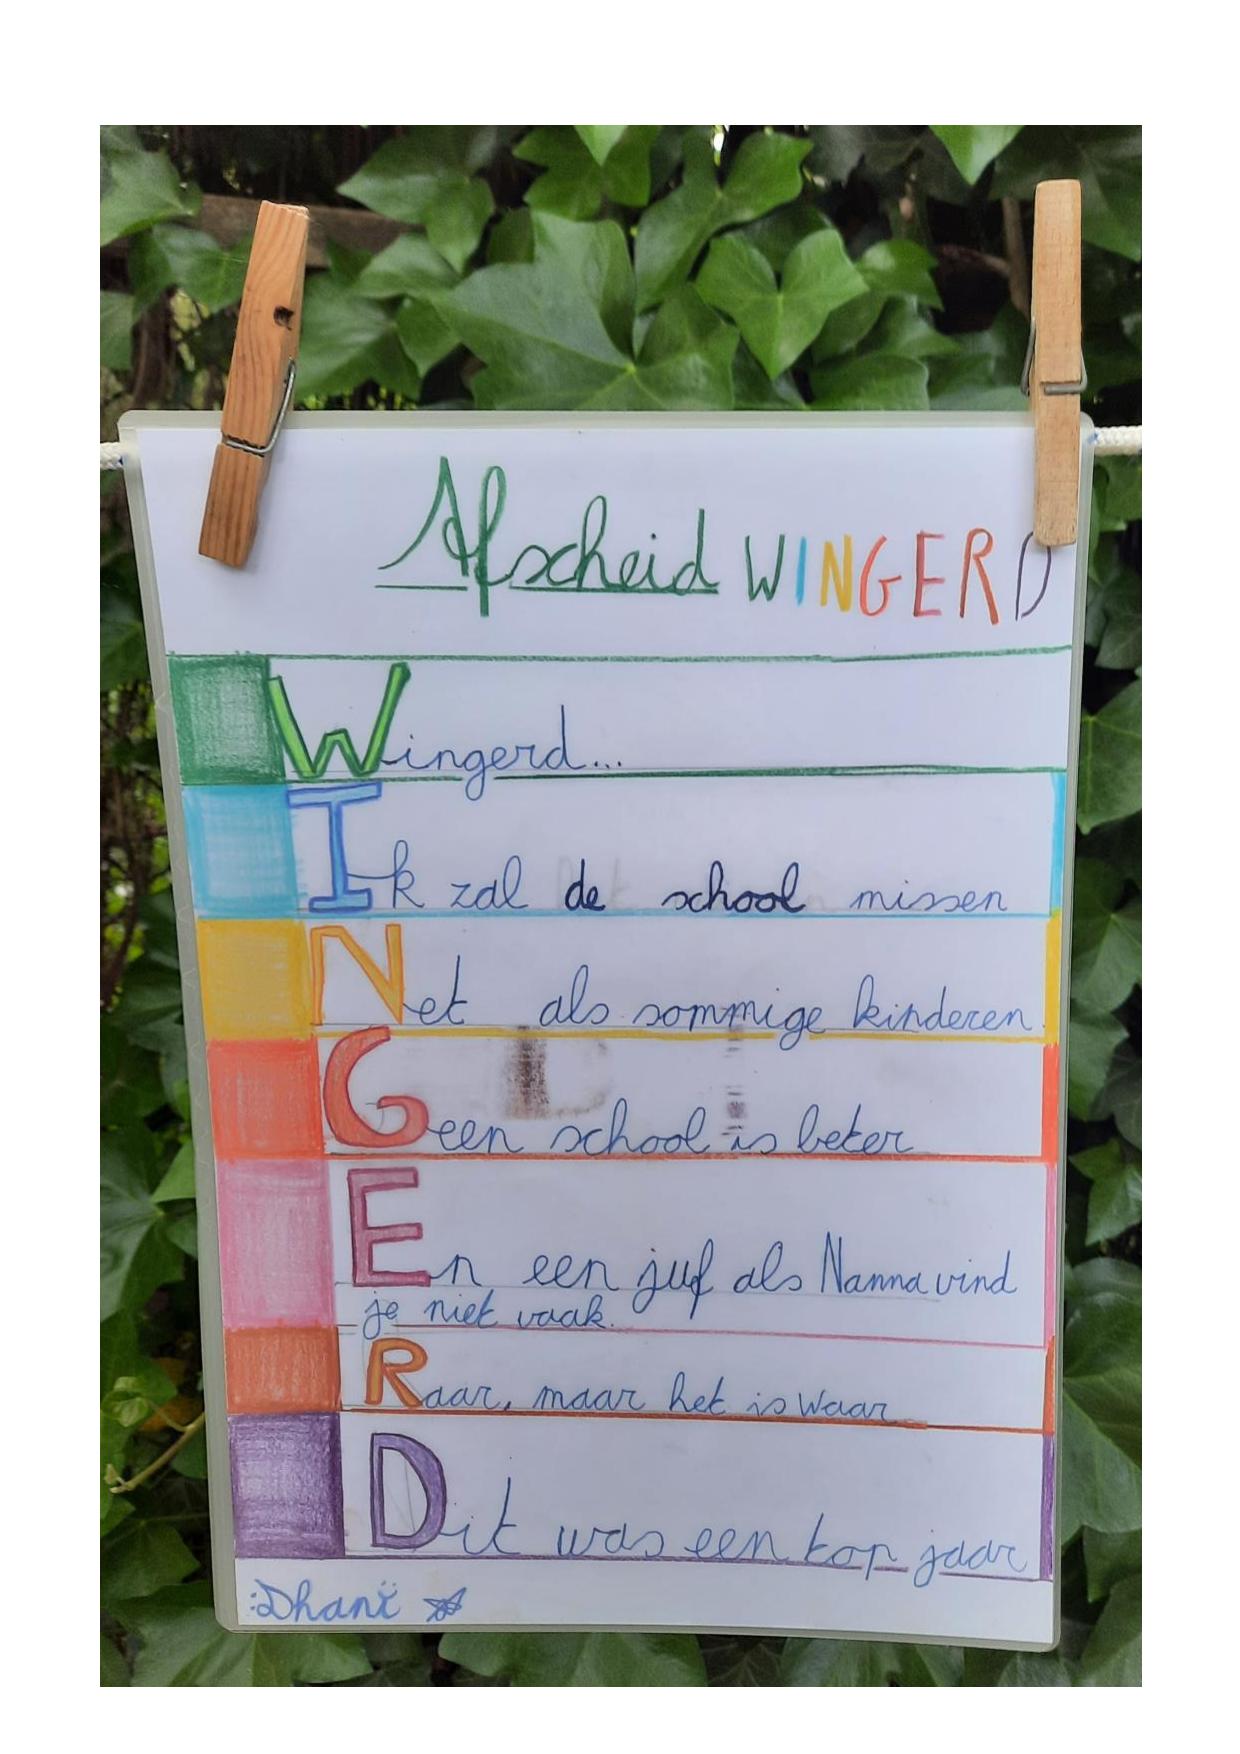 Afscheid WINGERD
Wingerd...
Ik zal de school missen
Net als sommige kinderen
Geen school is beter
En een juf als Nanna vind
je niet vaak.
Raar, maar het is waar
Dit was een top jaar
Dhani